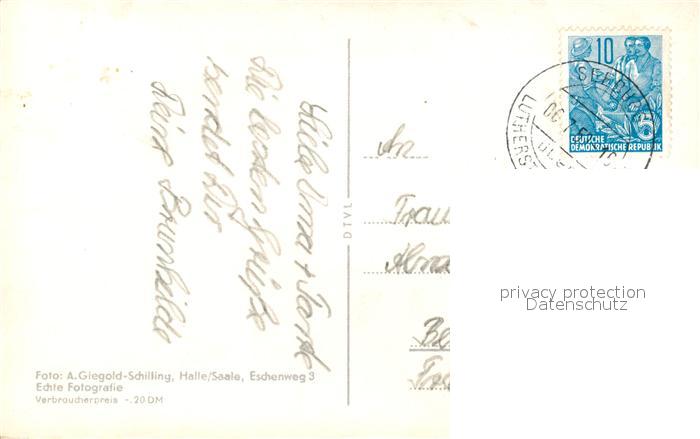 Liebe Oma + Tante
Die besten Grüße
sendet Dir
Deine Brunhilde
DTVL
An
Frau
Foto: A. Giegold-Schilling, Halle/Saale, Eschenweg 3
Echte Fotografie
Verbraucherpreis -.20 DM
10
5
DEUTSCHE
DEMOKRATISCHE REPUBLIK
LUTHERS
privacy protection
Datenschutz